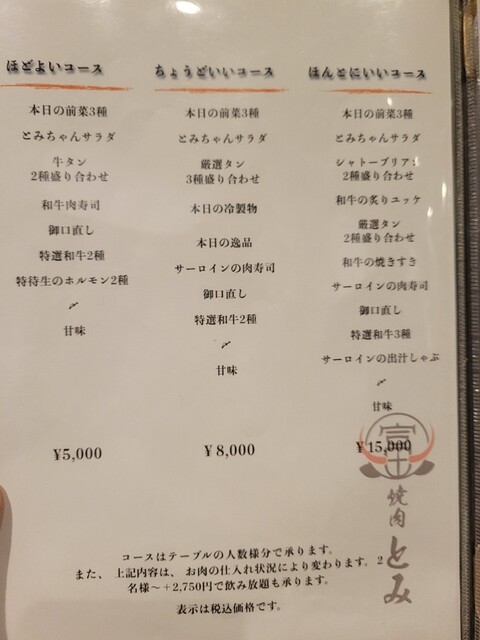 ほどよいコース
本日の前菜3種
とみちゃんサラダ
牛タン
2種盛り合わせ
和牛肉寿司
御口直し
特選和牛2種
特待生のホルモン2種
〆
甘味
¥5,000
ちょうどいいコース
本日の前菜3種
とみちゃんサラダ
厳選タン
3種盛り合わせ
本日の冷製物
本日の逸品
サーロインの肉寿司
御口直し
特選和牛2種
〆
甘味
¥8,000
ほんとにいいコース
本日の前菜3種
とみちゃんサラダ
シャトーブリアン
2種盛り合わせ
和牛の炙りユッケ
厳選タン
2種盛り合わせ
和牛の焼きすき
サーロインの肉寿司
御口直し
特選和牛3種
サーロインの出汁しゃぶ
〆
甘味
¥15,000
富
焼肉とみ
コースはテーブルの人数様分で承ります。
また、上記内容は、お肉の仕入れ状況により変わります。2
名様～+2,750円で飲み放題も承ります。
表示は税込価格です。